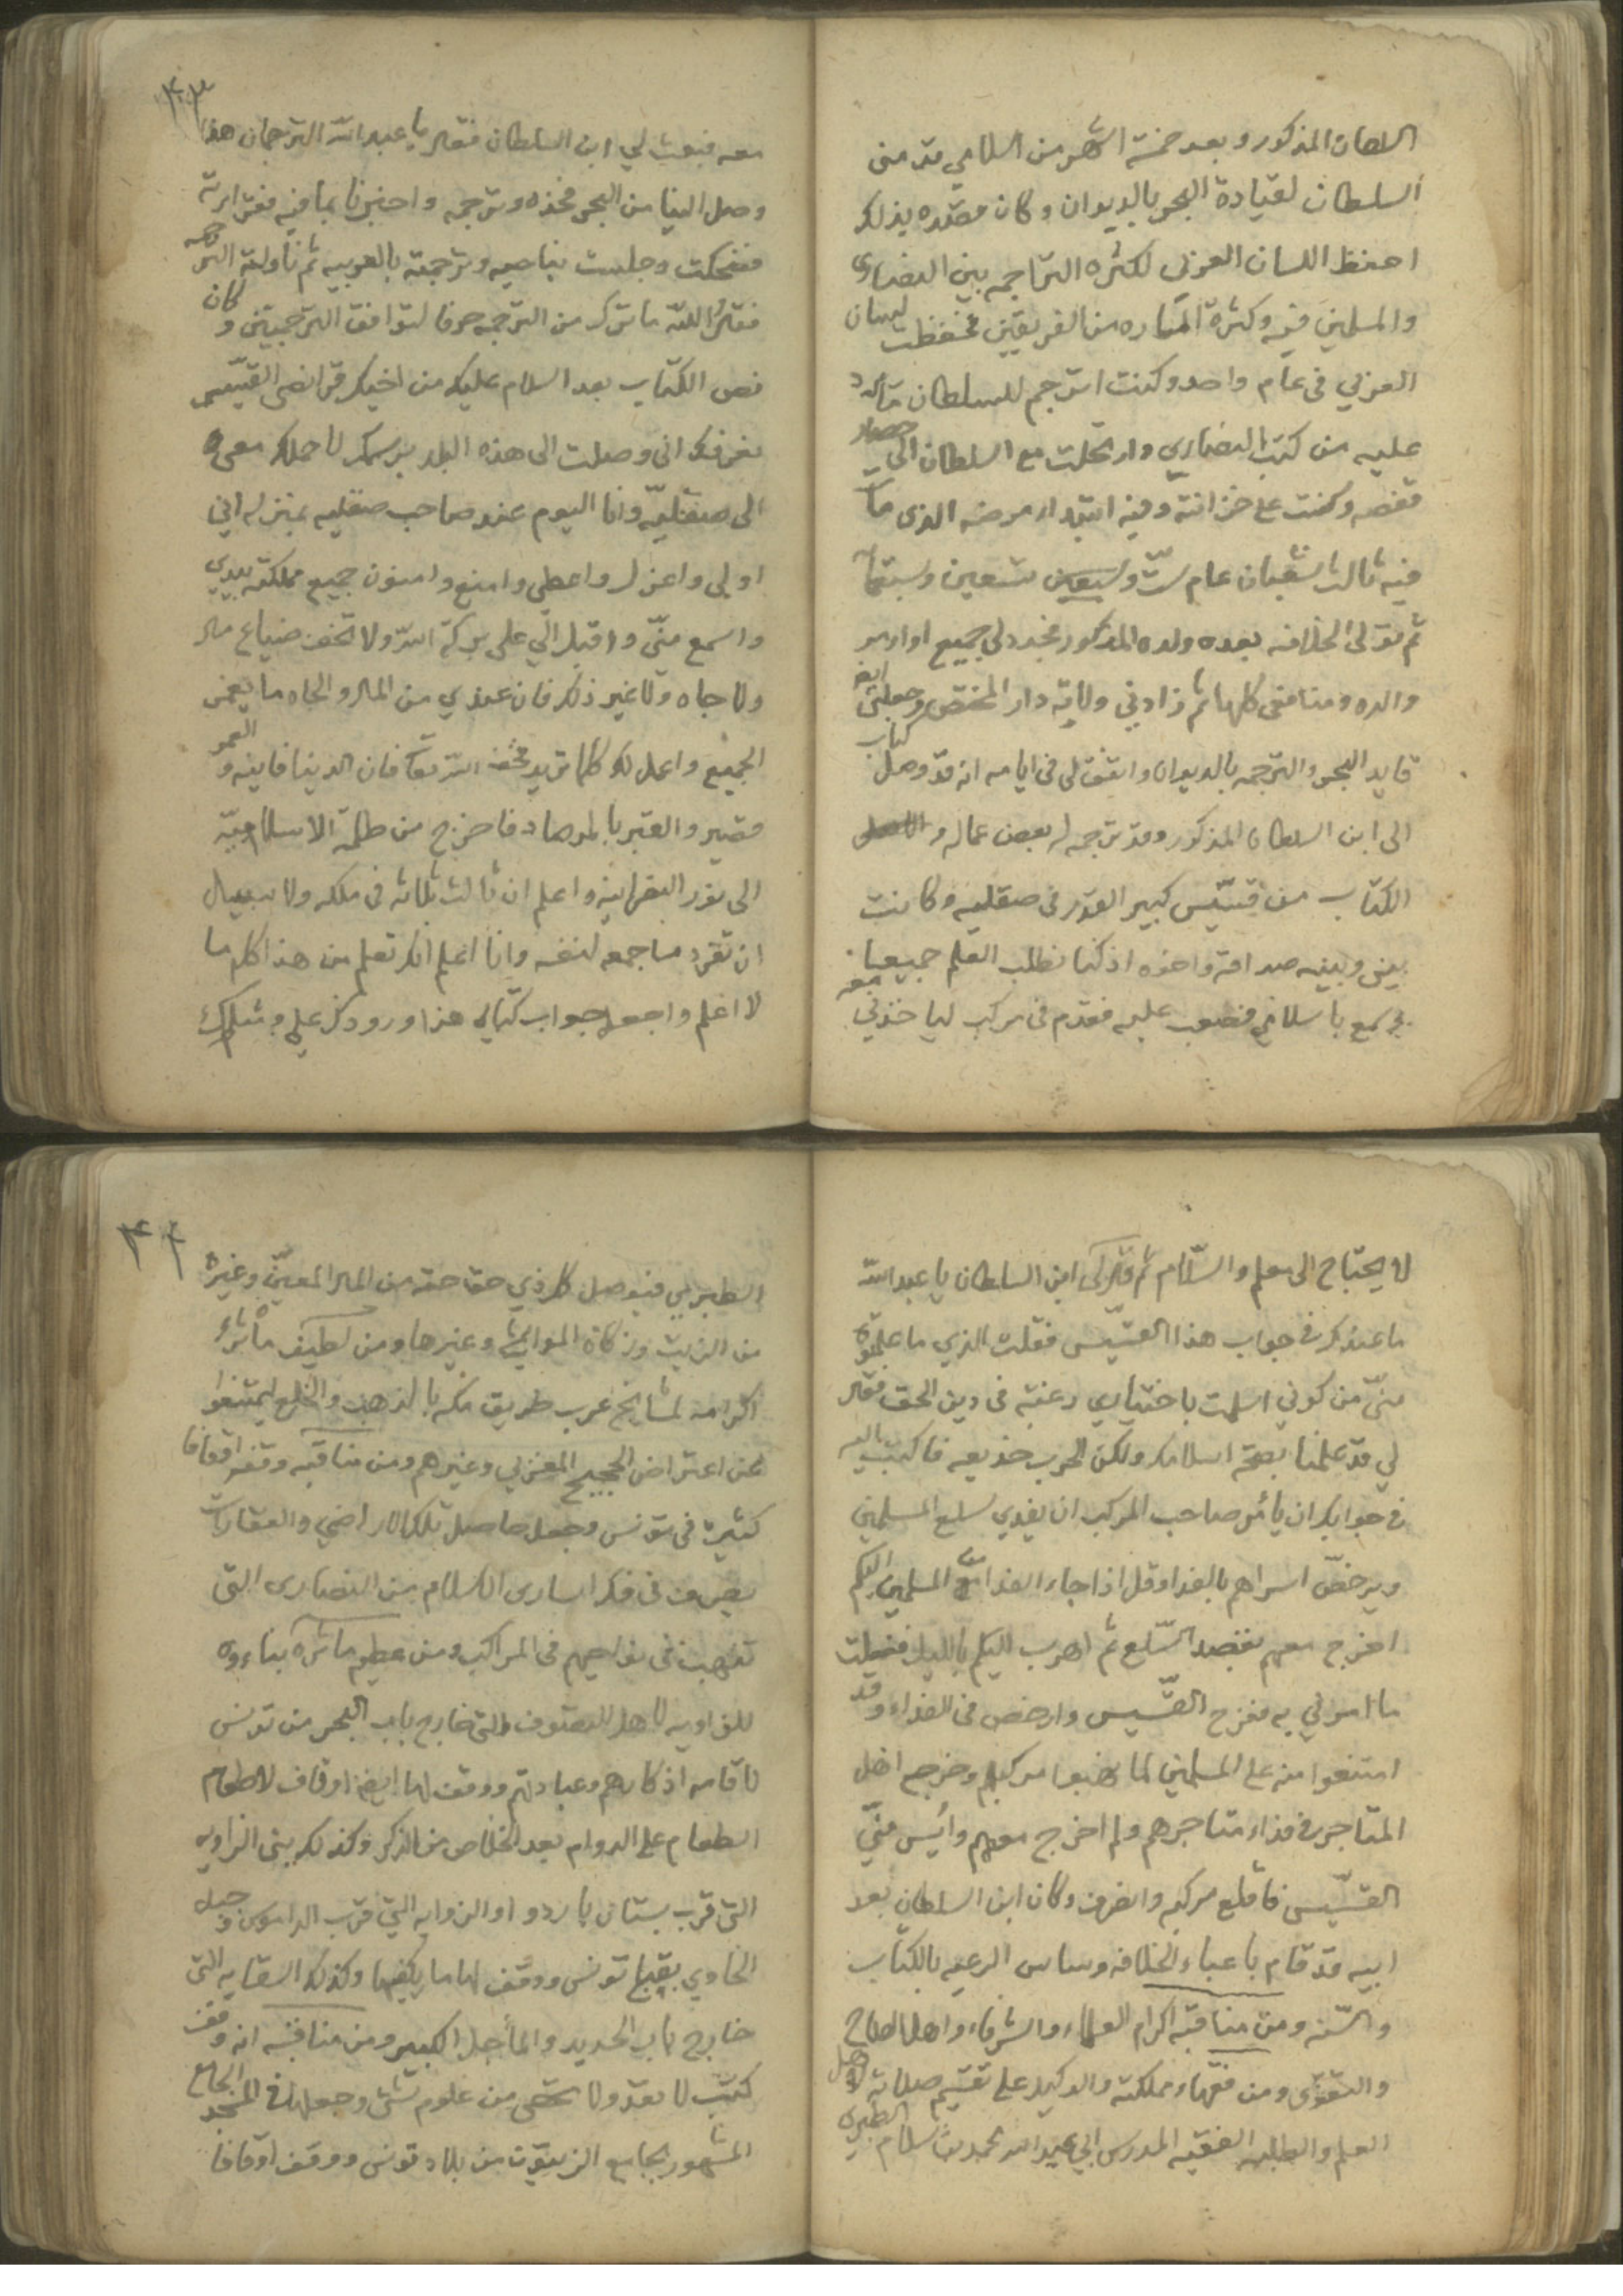 السلطان المذكور وبعد خمسة اشهر من اسلامي قدمني
السلطان لقيادة البحر بالديوان وكان مقصده بذلك
احفظ اللسان العربي لكثره التراجمه بين النصاري
والمسلمين فيه وكثرة من الفريقين فحفظت لسان
العربي في عام واحد وكنت اترجم للسلطان ما يرد
عليه من كتب النصاري وارتحلت مع السلطان الى حصار
قفصه وكنت على خزانته وفيه ابتداء مرضه الذي مات
فيه ثالث شعبان عام ستّ وتسعين وسبعماية
ثم تولى الخلافه بعده ولده المذكور فجدد لي جميع اوامر
والده ومنافعي كلها ثم زادني ولاية دار المختص وجعلني ايضا
قايد البحر والترجمه بالديوان واتفق لي في ايامه انه قد وصل كتاب
الى ابن السلطان المذكور وقد ترجمه له بعض عماله و
الكتاب من قسّيس كبير القدر في صقليه وكانت
بيني وبينه صداقة واخوه اذ كنا نطلب العلم جميعا
فسمع باسلامي فصعب عليه فقدم في مركب لياخذني معه
۴۳
معه فبعث لي ابن السلطان فقال يا عبد الله الترجمان هذا
وصل الينا من البحر فخذه وترجمه واخبرنا بما فيه فقراته
فضحكت وجلست بناحيه وترجمته بالعربيه ثم ناولته الترجمه
فقال والله ما ترك من الترجمه حرفا لتوافق الترجمتين وكان
نص الكتاب بعد السلام عليك من اخيك القسّيس
نعرفك اني وصلت الى هذه البلد برسمك لاحملك معي
الى صقليّه وانا اليوم عند صاحب صقليه بمنزله اني
اولى واعزل واعطي وامنع وامور جميع مملكته بيدي
واسمع منّي واقبل الي على بركة الله ولا تخف ضياع مال
ولا جاه ولا غير ذلك فان عندي من المال والجاه ما يعم
الجميع واعمل لك كلما تريد فخف الله تعالى فان الدنيا فانيه والعمر
قصير والقبر بالمرصاد فاخرج من ظلمة الاسلاميّه
الى نور النصرانيه واعلم ان ثالث ثلاثه في ملكه ولا سبيل
ان تفرد ما جمعه لنفسه وانا اعلم انك تعلم من هذا كله ما
لا اعلم واجعل جواب كتابي هذا ورودك علي ومثلك
لا يحتاج الى معلم والسّلام ثم قال لي ابن السلطان يا عبد الله
ما عندك في جواب هذا القسّيس فقلت الذي ما علمتوه
منّي من كوني اسلمت باختياري رغبة في دين الحق فقال
لي قد علمنا بصحة اسلامك ولكن الحرب خديعه فاكتب اليه
في جوابك ان يأمر صاحب المركب ان يفدي سلع المسلمين
ويرخصّ اسراهم بالفدا وقل اذا جاء الفدا مع المسلمين اليكم
اخرج معهم بقصد السّلع ثم اهرب اليكم بالليل ففعلت
ما امرني به ففرح القسّيس وارخص في الفداء وقد
امتنعوا منه على المسلمين لما نهبوا مركبهم وخرج اهل
المتاجر في فداء متاجرهم ولم اخرج معهم وأيس منّي
القسّيس فاقلع مركبه وانصرف وكان ابن السلطان بعد
ابيه قد قام باعباء الخلافه وساس الرعيه بالكتاب
والسّنه ومن مناقبه اكرام العلماء والشرفاء واهل الصلاح
والتقوى ومن فقهاء مملكته والوكيل على تقسيم صلاته لاهل
العلم والطلبه الفقيه المدرس ابي عبد الله محمد بن سلام الطبري
۴۴
الطبري فيوصل كل ذي حق حقه من المال المعينّ وغيره
من الزيت وزكاة المواشي وغيرها ومن لطيف ماثره
اكرامه لمشايخ عرب طريق مكه بالذهب والخلع ليمتنعوا
عن اعتراض الحجيج المغربي وغيرهم ومن مناقبه وقفه اوقافا
كثيرة في تونس وجعل حاصل تلك الاراضي والعقارات
يصرف في فكر اسارى الاسلام من النصارى التي
تنهب في نواحيهم في المراكب ومن عظيم ماثره بناءوه
للزاويه لاهل التصوف التي خارج باب البحر من تونس
لاقامه اذكارهم وعبادتهم ووقف لها ايضا اوقاف لاطعام
الطعام على الدوام بعد الخلاص من الذكر وكذلك بنى الزاويه
التي قرب بستان باردو او الزوايه التي قرب الداموس وجبل
الخاوي بقباع تونس ووقف لها ما يكفيها وكذلك السقايه التي
خارج باب الجديد والمأجل الكبير ومن مناقبه انه وقف
كتب لا تعد ولا تحصى من علوم شتى وجعلها في المسجد الجامع
المشهور بجامع الزيتون من بلاد تونس ووقف اوقافا